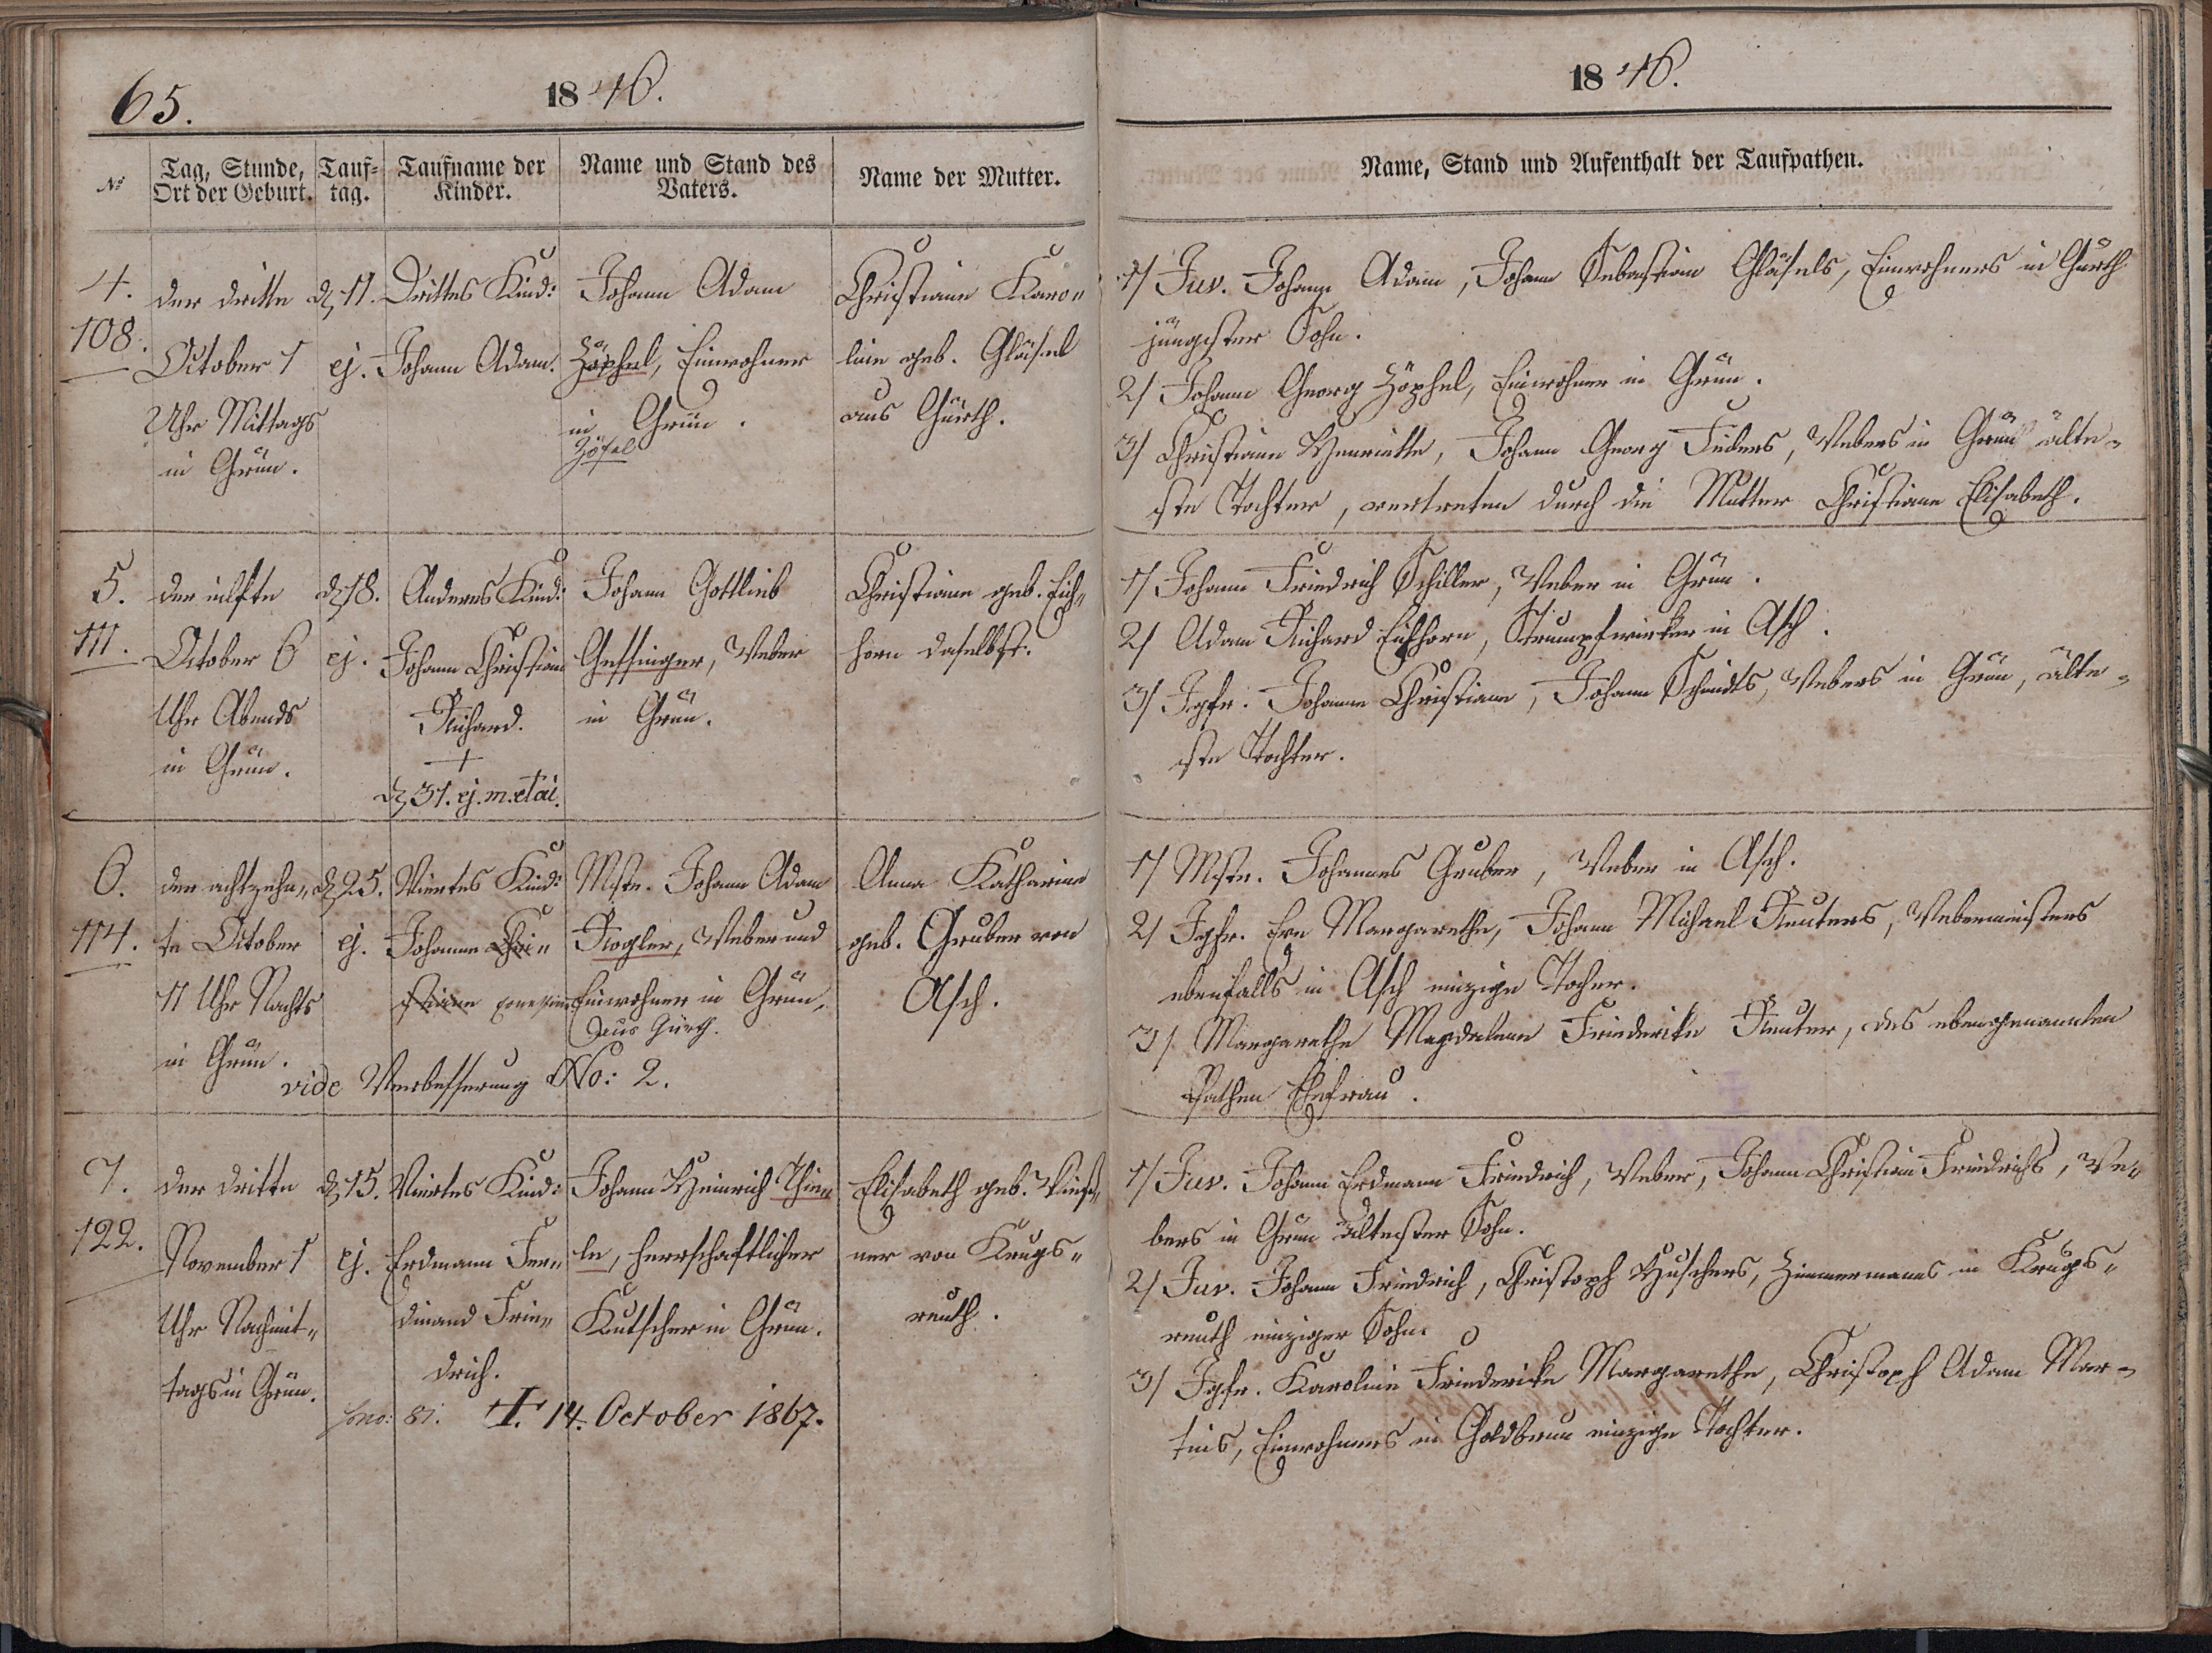 65.
1846.
1846.
№
Tag, Stunde, Ort der Geburt.
Tauf=tag.
Taufname der Kinder.
Name und Stand des Vaters.
Name der Mutter.
Name, Stand und Aufenthalt der Taufpathen.
4.
108.
der dritte
October 1
Uhr Mittags
in Grün.
d. 11.
ej.
Drittes Kind:
Johann Adam.
Johann Adam
Zöphel, Einwohner
in Grün.
Zöfel
Christiane Karo-
line geb. Gläsel
aus Gürth.
1/ Juv. Johann Adam, Johann Sebastian Gläsels, Einwohners in Gürth
jüngster Sohn.
2/ Johann Georg Zöphel, Einwohner in Grün.
3/ Christiane Henriette, Johann Georg Feilers, Webers in Grün älte-
ste Tochter, vertreten durch die Mutter Christiane Elisabeth.
5.
111.
der eilfte
October 6
Uhr Abends
in Grün.
d. 18.
ej.
Anderes Kind:
Johann Christian
Richard.
+
d. 31. ej. m. et ai.
Johann Gottlieb
Geßinger, Weber
in Grün.
Christiane geb. Eich-
horn daselbst.
1/ Johann Friedrich Schiller, Weber in Grün.
2/ Adam Richard Eichhorn, Strumpfwirker in Asch.
3/ Jgfr. Johanne Christiane, Johann Schmidts, Webers in Grün, älte-
ste Tochter.
6.
114.
der achtzehn-
te October
11 Uhr Nachts
in Grün.
d. 25.
ej.
Viertes Kind:
Johanne Chri-
stiane Ernestine
Mstr. Johann Adam
Rogler, Weber und
Einwohner in Grün,
aus Gürth.
vide Verbesserung No: 2.
Anna Katharina
geb. Gruber von
Asch.
1/ Mstr. Johannes Gruber, Weber in Asch.
2/ Jgfr. Eva Margarethe, Johann Michael Reuters, Webermeisters
ebenfalls in Asch einzige Tocher.
3/ Margarethe Magdalena Friederike Reuter, des ebengenannten
Pathen Ehefrau.
7.
122.
der dritte
November 1
Uhr Nachmit-
tags in Grün.
d. 15.
ej.
Viertes Kind:
Erdmann Fer-
dinand Frie-
drich.
81. +. 14. October 1867.
Johann Heinrich Thie-
le, herrschaftlicher
Kutscher in Grün.
Elisabeth geb. Wieß-
ner von Krugs-
reuth.
1/ Juv. Johann Erdmann Friedrich, Weber, Johann Christian Friedrichs, We-
bers in Grün ältester Sohn.
2/ Juv. Johann Friedrich, Christoph Huschers, Zimmermanns in Krugs-
reuth einziger Sohn.
3/ Jgfr. Karoline Friederike Margarethe, Christoph Adam Mar-
tins, Einwohners in Goldbrun einzige Tochter.